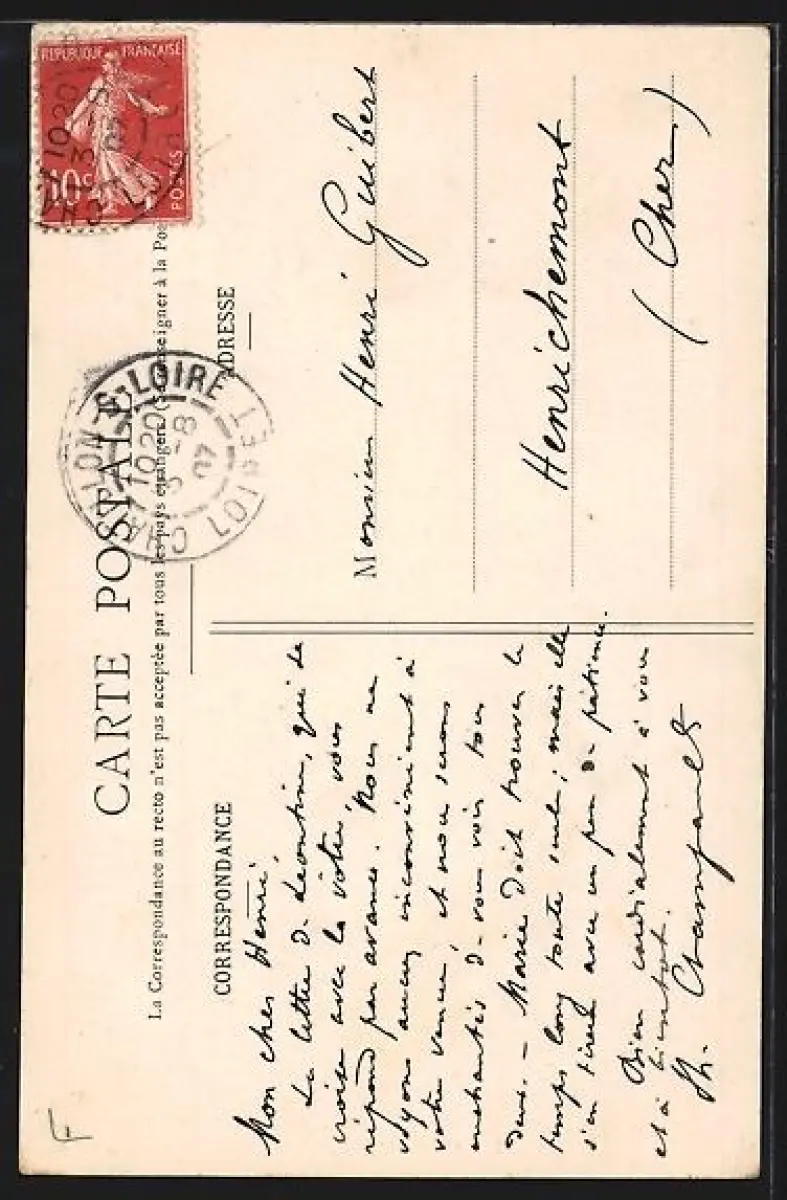 REPUBLIQUE FRANÇAISE
10c POSTES
CARTE POSTALE
La Correspondance au recto n'est pas acceptée par tous les pays étrangers. (Se renseigner à la Pos
CHALON-S-LOIRE
10 20
3 -8
07
LOIRET
CORRESPONDANCE
ADRESSE
Mon cher Henri,
La lettre de Léontine, qui se
croise avec la vôtre, vous
répond par avance. Nous ne
voyons aucun inconvénient à
votre venue, et nous serons
enchantés de vous voir tous
deux. – Marie doit trouver le
temps long toute seule; mais elle
s'en tirera avec un peu de patience.
Bien cordialement à vous
et à bientôt.
Monsieur Henri Guibert
Henrichemont
(Cher)
F